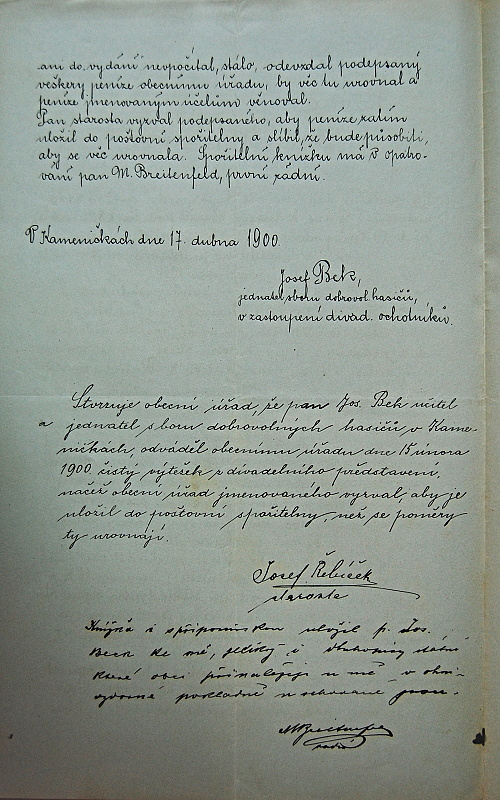 am do vydání nevpočítal, stálo, odevzdal podepsaný
veškery peníze obecnímu úřadu, by věc tu urovnal a
peníze jmenovaným účelům věnoval.
Pan starosta vyzval podepsaného, aby peníze zatím
uložil do poštovní spořitelny a slíbil, že bude působiti,
aby se věc urovnala. Spořitelní knížku má v opatro-
vání pan M. Breitenfeld, první radní.
V Kameničkách dne 17. dubna 1900.
Josef Bek,
jednatel sboru dobrovol. hasičů,
v zastoupení divad. ochotníků.
Stvrzuje obecní úřad, že pan Jos. Bek učitel
a jednatel sboru dobrovolných hasičů v Kame-
ničkách, odváděl obecnímu úřadu dne 15 února
1900 čistý výtěžek z divadelního představení,
načež obecní úřad jmenovaného vyzval, aby je
uložil do poštovní spořitelny, než se poměry
ty urovnají.
Josef Řebíček
starosta
Knížka i s připomínkou uložil p. Jos.
Beck ke mě, i
které obci přináležejí u mě v obecní
pokladně uschované jsou.
M Breitenfeld
radní